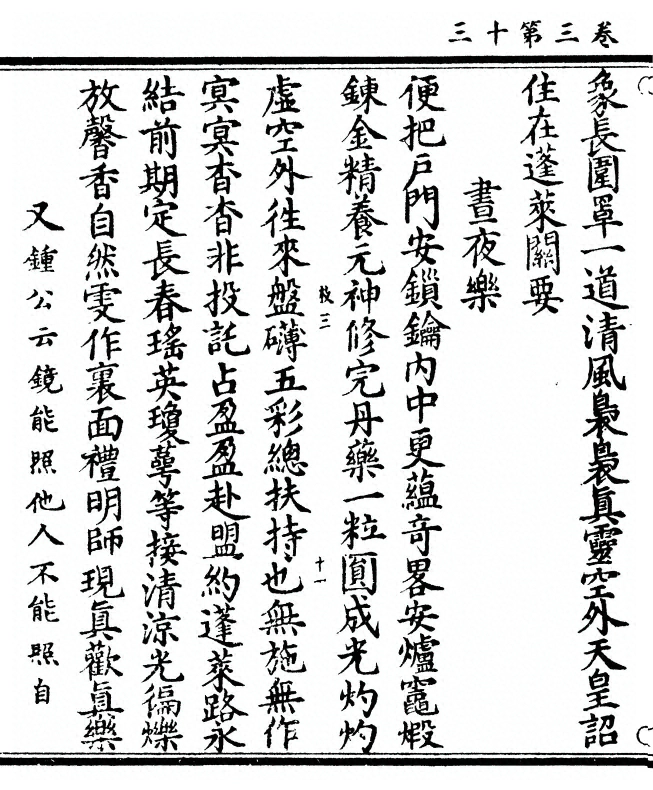 卷三第十三
象長圍罩一道清風裊裊眞靈空外天皇詔
住在蓬萊關要
晝夜樂
便把戶門安鎖鑰內中更蘊奇畧安爐竈煅
鍊金精養元神修完丹藥一粒圓成光灼灼
虛空外往來盤礴五彩總扶持也無施無作
冥冥杳杳非投託占盈盈赴盟約蓬萊路永
結前期定長春瑤英瓊蕚等接清涼光徧爍
放馨香自然雯作裏面禮明師現眞歡眞樂
又鍾公云鏡能照他人不能照自
教三
十一